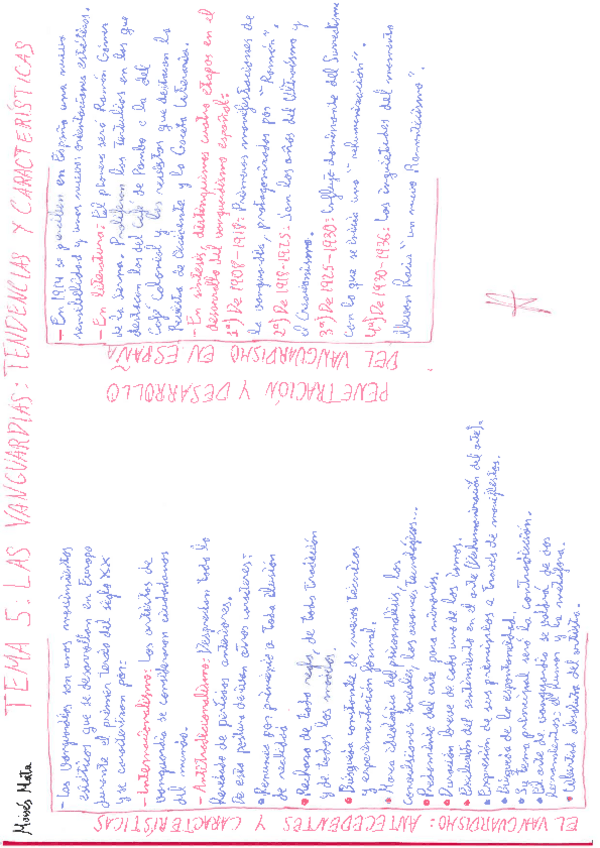 Moisés Mata
TEMA 5: LAS VANGUARDIAS: TENDENCIAS Y CARACTERÍSTICAS
EL VANGUARDISMO: ANTECEDENTES Y CARACTERÍSTICAS
- Las Vanguardias son unos movimientos
estéticos que se desarrollan en Europa
durante el primer tercio del siglo XX
y se caracterizan por:
- Internacionalismo: Los artistas de
vanguardia se consideran ciudadanos
del mundo.
- Antitradicionalismo: Desprecian todo lo
heredado de períodos anteriores.
De esta postura derivan otros caracteres:
• Renuncia por principio a toda ilusión
de realidad
• Rechazo de toda regla, de toda tradición
y de todos los modos.
• Búsqueda constante de nuevas técnicas
y experimentación formal.
• Marco ideológico del psicoanálisis, las
convulsiones sociales, los avances tecnológicos...
• Predominio del arte para minorías.
• Duración breve de cada uno de los ismos.
• Evasión del sentimiento en el arte (deshumanización del arte).
• Expresión de sus principios a través de manifiestos.
• Búsqueda de la espontaneidad.
• Su tema principal será la contradicción.
• El arte de vanguardia se valdrá de dos
herramientas: el humor y la metáfora.
• Libertad absoluta del artista.
PENETRACIÓN Y DESARROLLO
DEL VANGUARDISMO EN ESPAÑA
- En 1914 se perciben en España una nueva
sensibilidad y unas nuevas orientaciones estéticas.
- En literatura: El pionero será Ramón Gómez
de la Serna. Proliferan las tertulias en las que
destacan las del Café de Pombo o la del
Café Colonial y las revistas que destacan la
Revista de Occidente y la Gaceta Literaria.
- En síntesis, distinguimos cuatro etapas en el
desarrollo del vanguardismo español:
1ª) De 1908-1918: Primeras manifestaciones de
la vanguardia, protagonizadas por "Ramón".
2ª) De 1918-1925: Son los años del Ultraísmo y
el Creacionismo.
3ª) De 1925-1930: Influjo dominante del Surrealismo
con lo que se inicia una "rehumanización".
4ª) De 1930-1936: Las inquietudes del momento
llevan hacia "un nuevo Romanticismo".